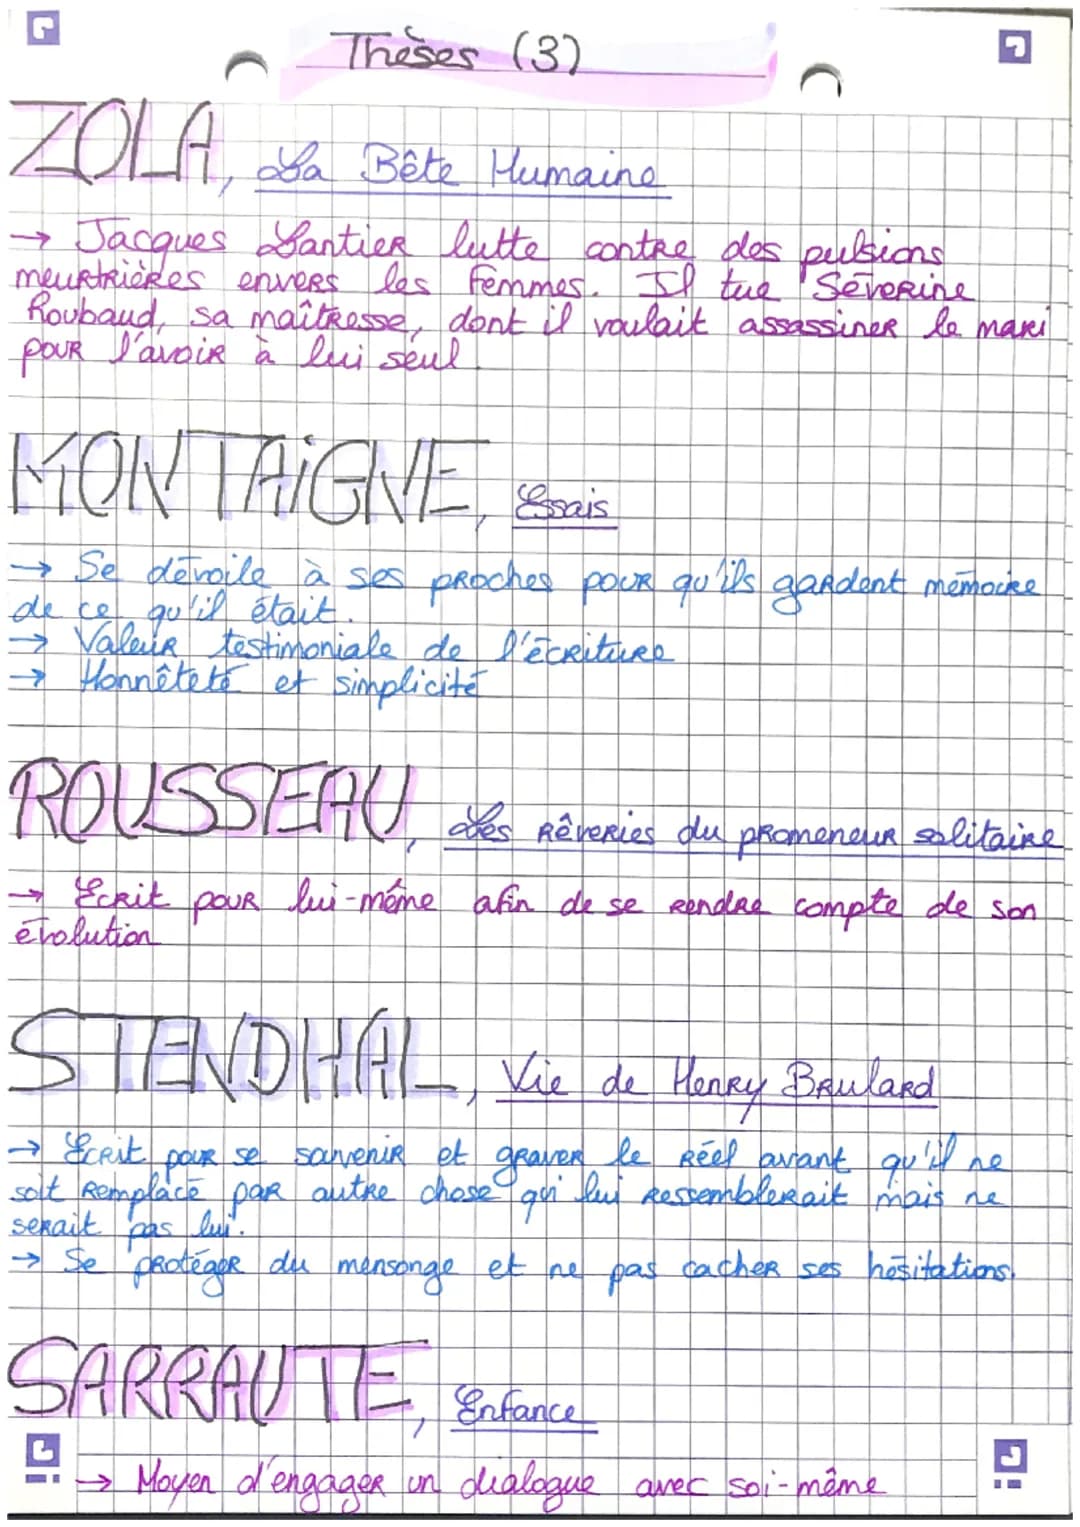 Thèses (3)
ZOLA, La Bête Humaine
→ Jacques Lantier lutte contre des pulsions
meurtrières envers les femmes. Il tue Séverine
Roubaud, sa maîtresse, dont il voulait assassiner le mari
pour l'avoir à lui seul.
MONTAIGNE, Essais
→ Se dévoile à ses proches pour qu'ils gardent mémoire
de ce qu'il était.
→ Valeur testimoniale de l'écriture
→ Honnêteté et simplicité
ROUSSEAU, Les rêveries du promeneur solitaire
→ Ecrit pour lui-même afin de se rendre compte de son
évolution
STENDHAL, Vie de Henry Brulard
→ Ecrit pour se souvenir et graver le réel avant qu'il ne
soit remplacé par autre chose qui lui ressemblerait mais ne
serait pas lui.
→ Se protéger du mensonge et ne pas cacher ses hésitations.
SARRAUTE, Enfance
→ Moyen d'engager un dialogue avec soi-même